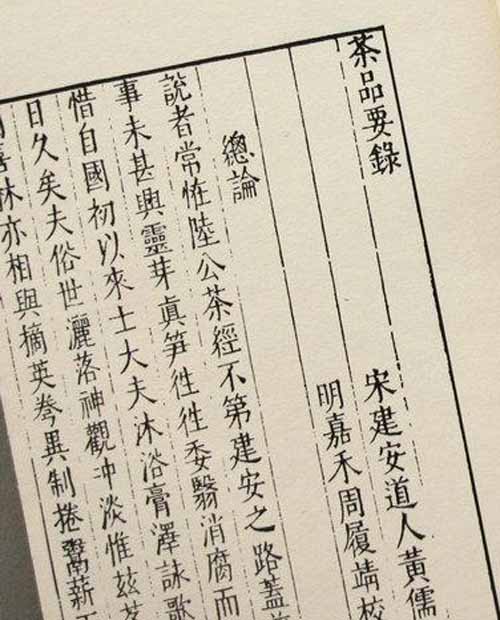 茶品要錄
宋建安道人黃儒
明嘉禾周履靖校
總論
說者常恠陸公茶經不第建安之路蓋
事未甚興靈芽眞笋往往委翳消腐而
惜自國初以來士大夫沐浴膏澤詠歌
日久矣夫俗世灑落神觀冲淡惟茲
林亦相與摘英異制捲鬻薪